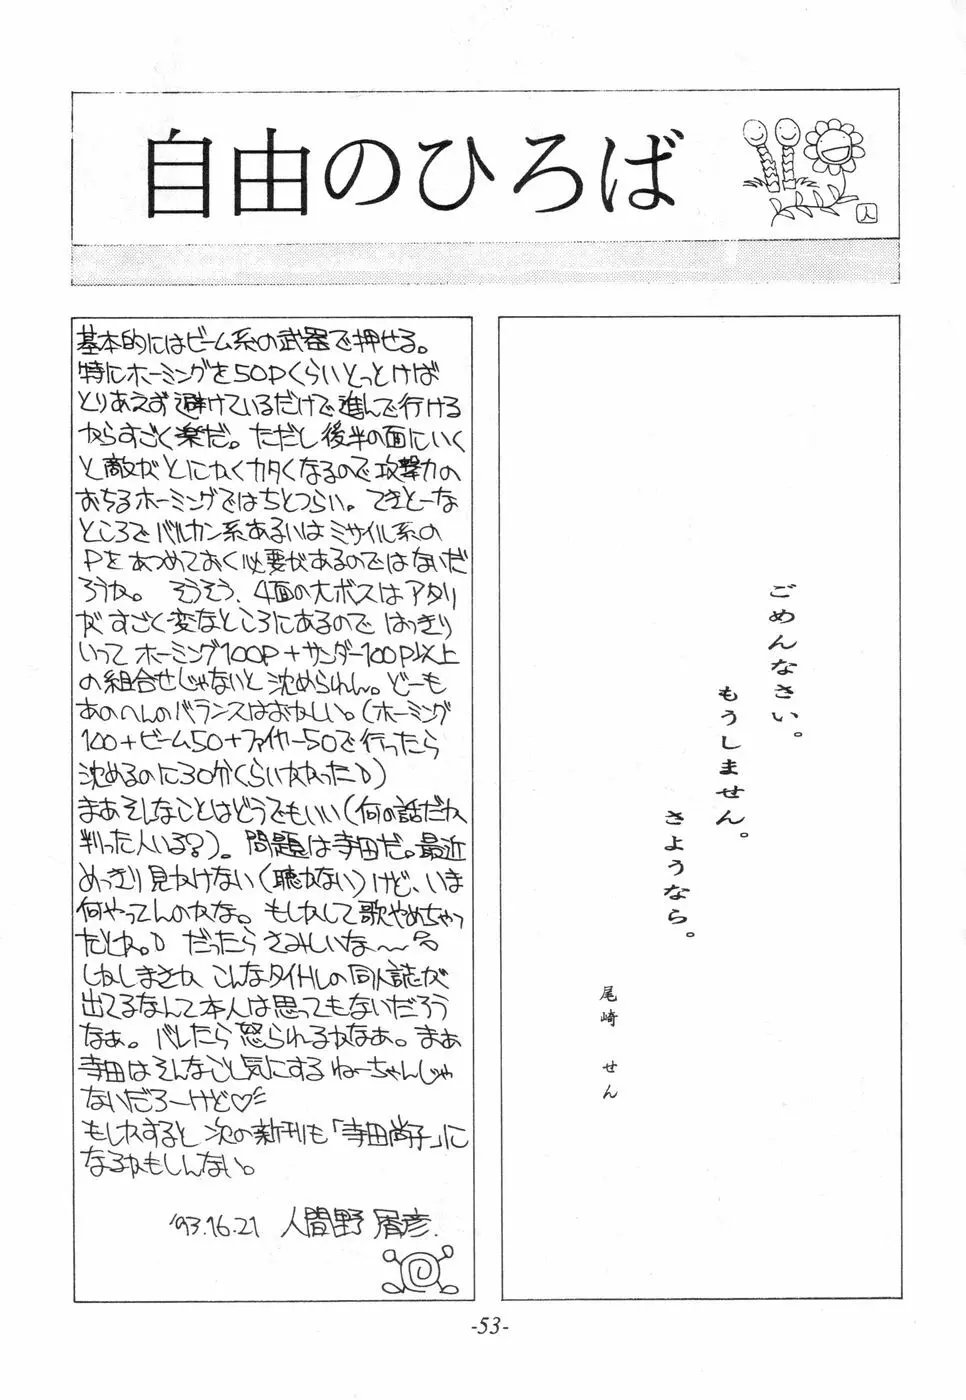 自由のひろば
人
基本的にはビーム系の武器で押せる。
特にホーミングを50Pくらいとっとけば
とりあえず避けているだけで進んで行ける
からすごく楽だ。ただし後半の面にいく
と敵がとにかくカタくなるので攻撃力の
おちるホーミングではちとつらい。てきとーな
ところでバルカン系あるいはミサイル系の
Pをあつめておく必要があるのではないだ
ろうか。そうそう、4面の大ボスはアタリ
がすごく変なところにあるのではっきり
いってホーミング100P+サンダー100P以上
の組合せじゃないと沈められん。どーも
あのへんのバランスはおかしい。(ホーミング
100+ビーム50+ファイヤー50で行ったら
沈めるのに30分くらいかかった)
まあそんなことはどうでもいい(何の話だか
判った人いる?)。問題は寺田だ。最近
めっきり見かけない(聴かない)けど、いま
何やってんのかな。もしかして歌やめちゃっ
たとか。だったらさみしいな〜
しかしまさか こんなタイトルの同人誌が
出てるなんて本人は思ってもないだろう
なぁ。バレたら怒られるかなあ。まぁ
寺田はそんなこと気にするねーちゃんじゃ
ないだろーけど♡
もしかすると 次の新刊も「寺田尚子」に
なるかもしんない。
'93.16.21 人間野 屑彦.
ごめんなさい。
もうしません。
さようなら。
尾崎 せん
-53-